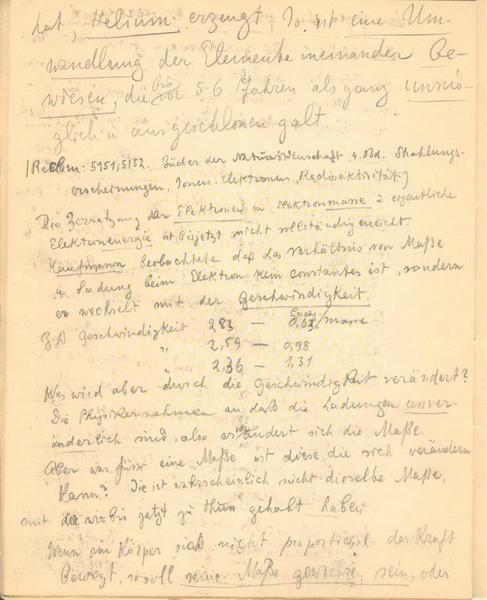 hat, Helium erzeugt, So ist eine Um-
wandlung der Elemente ineinander Be-
wiesen, die bis 5-6 Jahren als ganz unmö-
glich u ausgeschlossen galt.
(Reclam: 5151, 5152. Bücher der Naturwissenschaft 4. Bd. Strahlungs-
erscheinungen, Ionen, Elektronen, Radioaktivität)
Die Zersetzung der Elektronen in Elektronmasse u eigentliche
Elektronenergie ist bisjetzt nicht vollständig erreicht.
Kaufmann beobachtete daß das Verhältnis von Maße
u Ladung beim Elektron kein constantes ist, sondern
es wechselt mit der Geschwindigkeit.
Z.B. Geschwindigkeit 2,83 — 0,63/masse
" 2,59 — 0,98
" 2,36 — 1,31
Was wird aber durch die Geschwindigkeit verändert?
Die Physiker nehmen an daß die Ladungen unver-
änderlich sind, also verändert sich die Maße.
Aber was fürr eine Maße ist diese die sich verändern
Kann? Die ist wahrscheinlich nicht dieselbe Maße,
mit der wir bis jetzt zu thun gehabt haben,
Wenn ein Körper sich nicht proportional der Kraft
Bewegt, so soll seine Maße gewachsen sein, oder